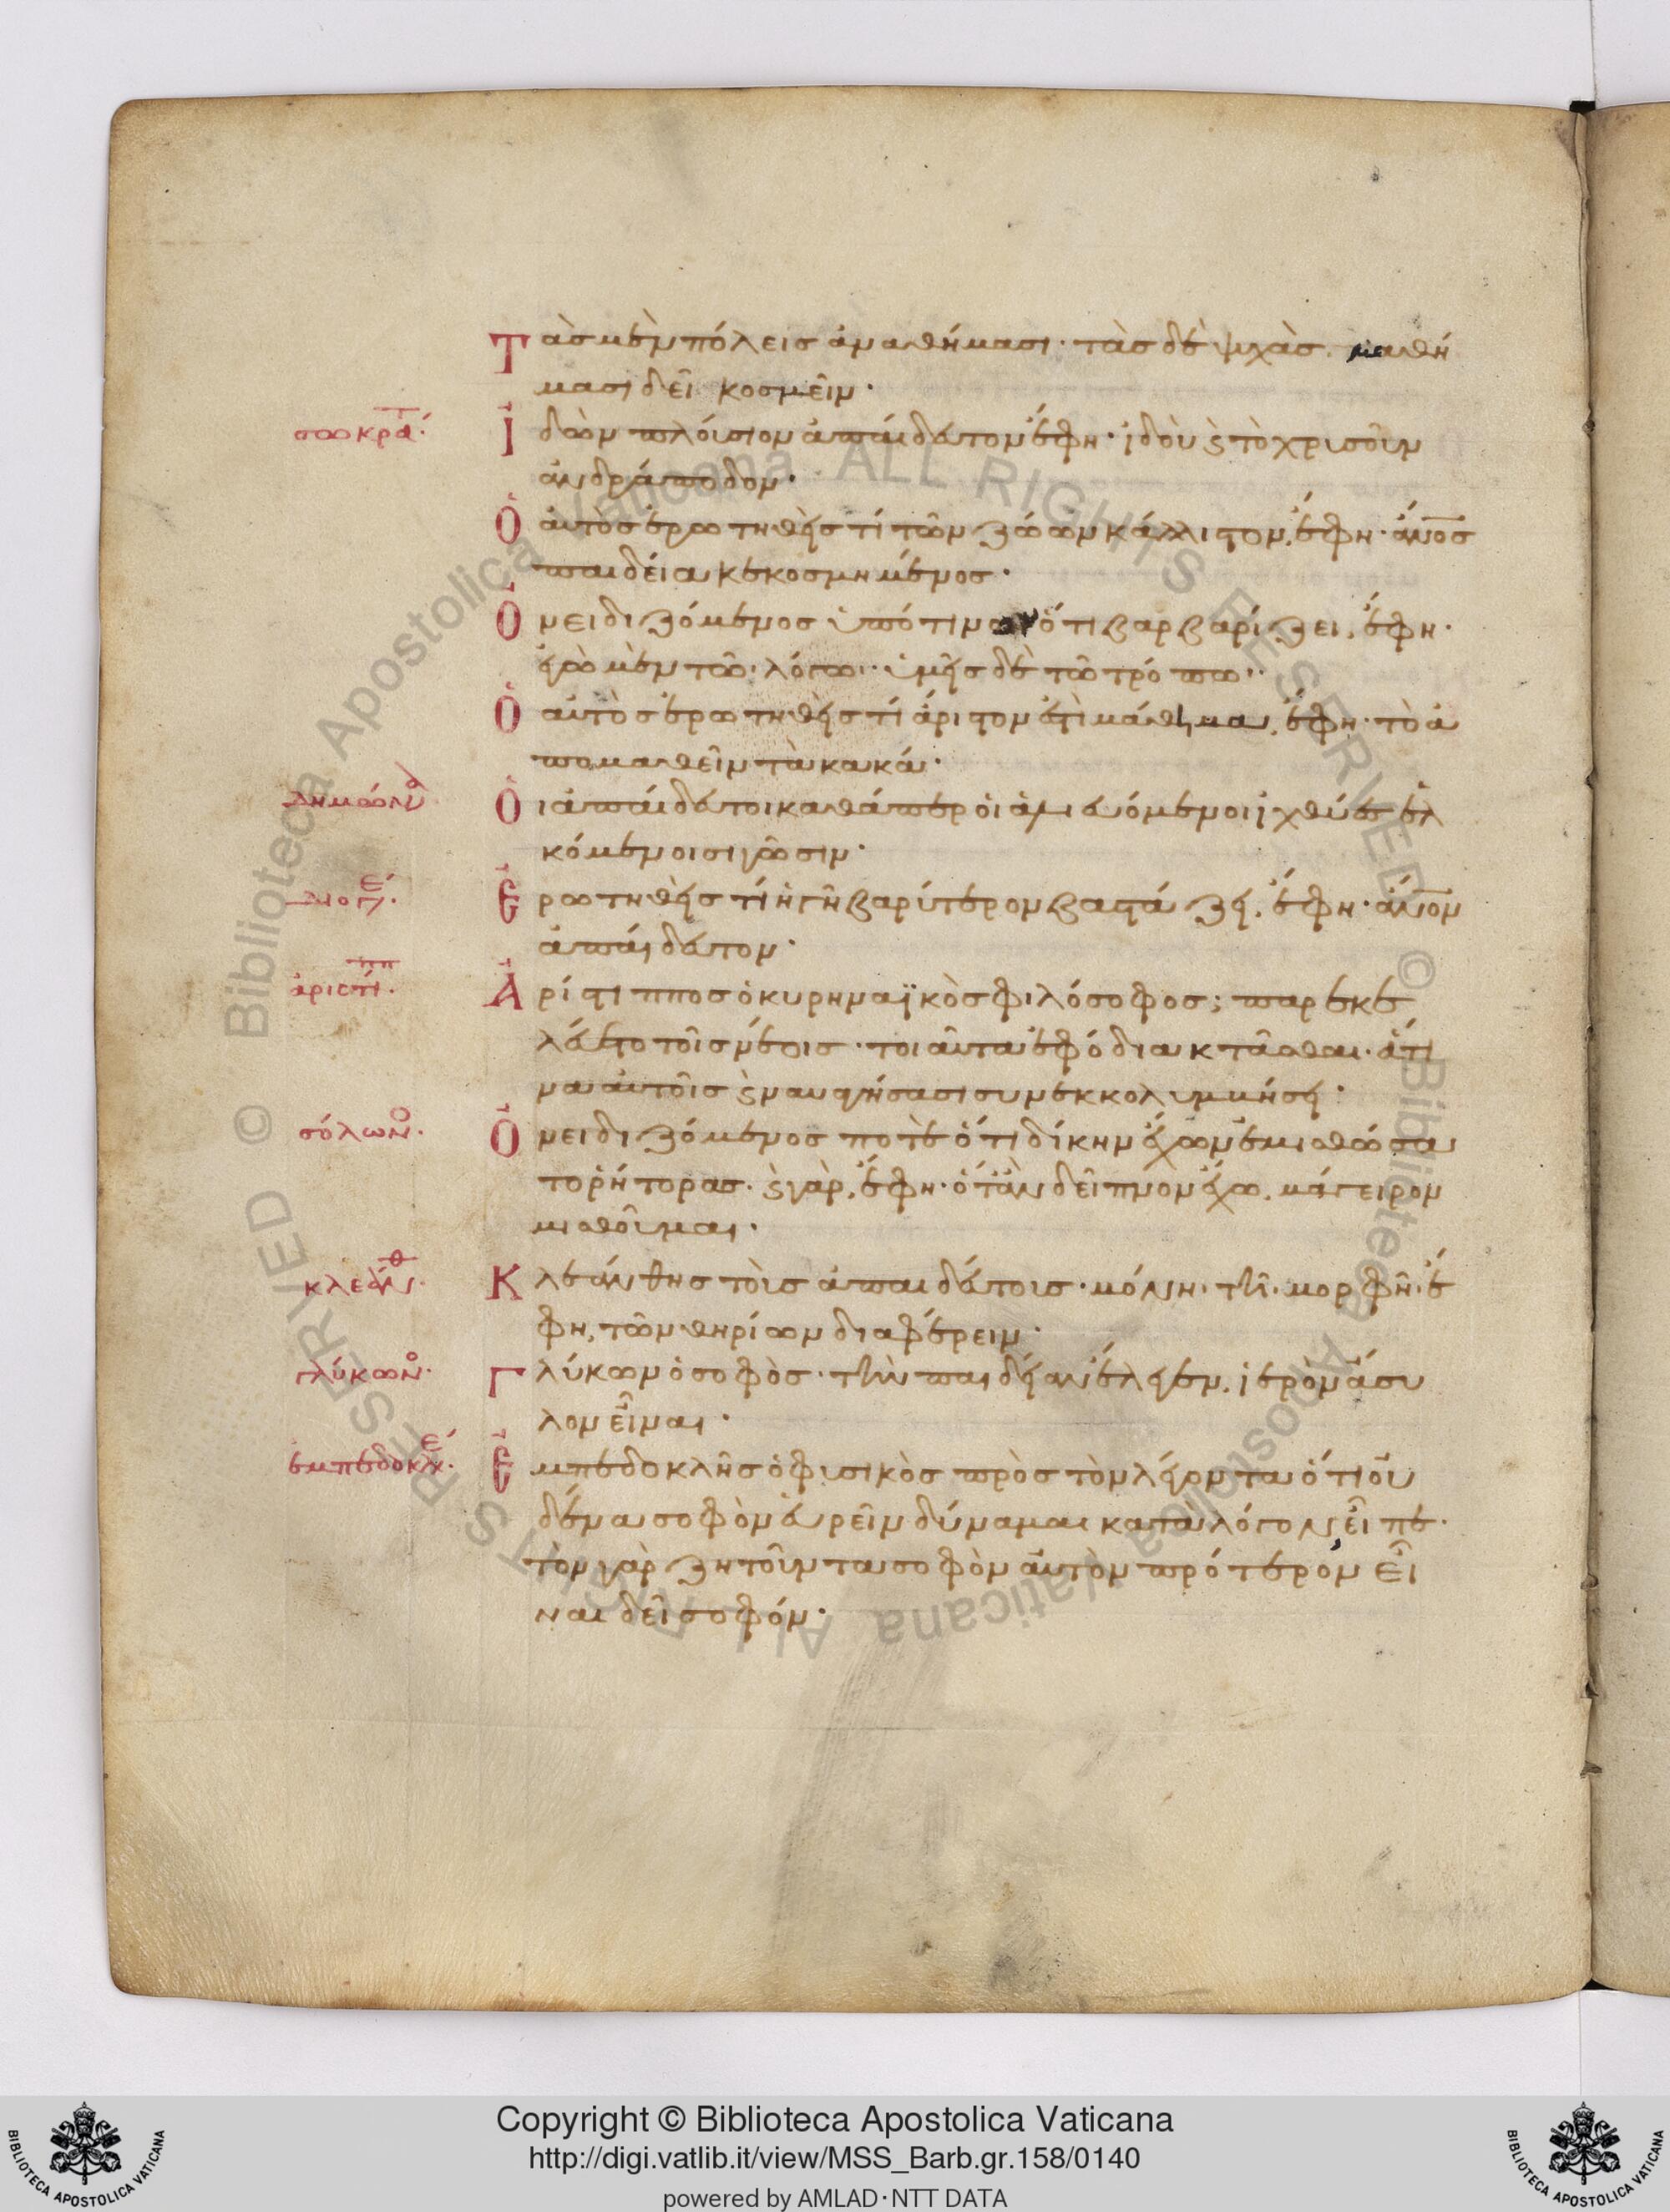 Τὰς μὲν πόλεις ἀναθήμασι· τὰς δὲ ψυχὰς, μαθή
μασι δεῖ κοσμεῖν·
σωκρά·
Ἰδὼν πλούσιον ἀπαίδευτον ἔφη· ἰδοὺ ϛ τὸ χρυσοῦν
ἀνδράποδον·
Ὁ αὐτὸς ἐρωτηθεὶς τί τῶν ζώων κάλλιστον, ἔφη· ἄνος
παιδεία κεκοσμημένος·
Ὀνειδιζόμενος ὑπό τινος ὅτι βαρβαρίζει, ἔφη·
ἐγὼ μὲν τῶ λόγω· ὑμεῖς δὲ τῶ τρόπω·
Ὁ αὐτὸς ἐρωτηθεὶς τί ἄριστον ἐστὶ μάθημα, ἔφη· τὸ ἀ
πομαθεῖν τὰ κακά·
δημών
Ὁι ἀπαίδευτοι καθάπερ ὁι ἁλιευόμενοι ἰχθύες ἑλ
κόμενοι σιγῶσιν·
διογέ·
Ἐρωτηθεὶς τί ἡ γῆ βαρύτερον βαστάζει, ἔφη· ἄνον
ἀπαίδευτον·
ἀριστί·
Ἀρίστιππος ὁ κυρηναϊκὸς φιλόσοφος; παρεκε
λεύετο τοῖς νέοις· τοιαῦτα ἐφόδια κτᾶσθαι· ἅτι
να αὐτοῖς ϛ ναυαγήσασι συνεκκολυμβήσει·
σόλων·
Ὀνειδιζόμενος ποτὲ ὅτι δίκην ἔχων ἐμισθώσα
το ῥήτορας· ϛ γὰρ, ἔφη· ὅτἂν δεῖπνον ἔχω, μάγειρον
μισθοῦμαι·
κλεάν·
Κλεάνθης τοὶς ἀπαιδεύτοις· μόνη· τῆ· μορφῆ· ἔ
φη, τῶν θηρίων διαφέρειν·
γλύκων·
Γλύκων ὁ σοφὸς· τὴν παιδείαν ἔλεγεν, ἱερὸν ἄσυ
λον εἶναι·
ἐμπεδοκλ·
Ἐμπεδοκλῆς ὁ φυσικὸς πρὸς τὸν λέγοντα ὅτι οὐ
δένα σοφὸν εὑρεῖν δύναμαι κατὰ λόγον, εἶπε·
τὸν γὰρ ζητοῦντα σοφὸν αὐτὸν πρότερον εἶ
ναι δεῖ σοφόν·
BIBLIOTECA APOSTOLICA VATICANA
Copyright © Biblioteca Apostolica Vaticana
http://digi.vatlib.it/view/MSS_Barb.gr.158/0140
powered by AMLAD·NTT DATA
BIBLIOTECA APOSTOLICA VATICANA
© Biblioteca Apostolica Vaticana ALL RIGHTS RESERVED
© Biblioteca Apostolica Vaticana ALL RIGHTS RESERVED